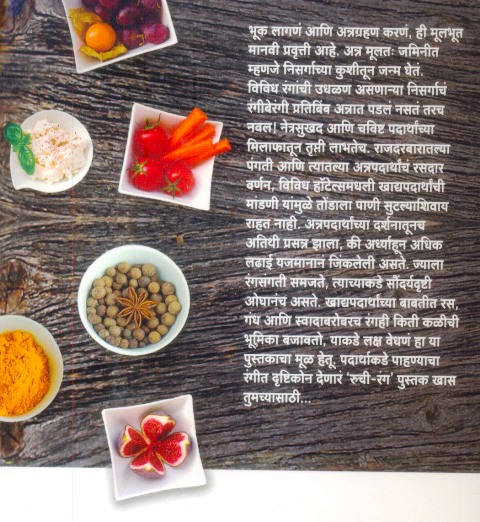 भूक लागणं आणि अन्नग्रहण करणं, ही मूलभूत
मानवी प्रवृत्ती आहे. अन्न मूलतः जमिनीत
म्हणजे निसर्गाच्या कुशीतून जन्म घेतं.
विविध रंगांची उधळण असणाऱ्या निसर्गाचं
रंगीबेरंगी प्रतिबिंब अन्नात पडलं नसतं तरच
नवल! नेत्रसुखद आणि चविष्ट पदार्थांच्या
मिलाफातून तृप्ती लाभतेच. राजदरबारातल्या
पंगती आणि त्यातल्या अन्नपदार्थांचं रसदार
वर्णन, विविध हॉटेल्समधली खाद्यपदार्थांची
मांडणी यांमुळे तोंडाला पाणी सुटल्याशिवाय
राहत नाही. अन्नपदार्थांच्या दर्शनातूनच
अतिथी प्रसन्न झाला, की अर्ध्याहून अधिक
लढाई यजमानानं जिंकलेली असते. ज्याला
रंगसंगती समजते, त्याच्याकडे सौंदर्यदृष्टी
ओघानंच असते. खाद्यपदार्थांच्या बाबतीत रस,
गंध आणि स्वादाबरोबरच रंगही किती कळीची
भूमिका बजावतो, याकडे लक्ष वेधणं हा या
पुस्तकाचा मूळ हेतू. पदार्थाकडे पाहण्याचा
रंगीत दृष्टिकोन देणारं 'रुची-रंग' पुस्तक खास
तुमच्यासाठी...